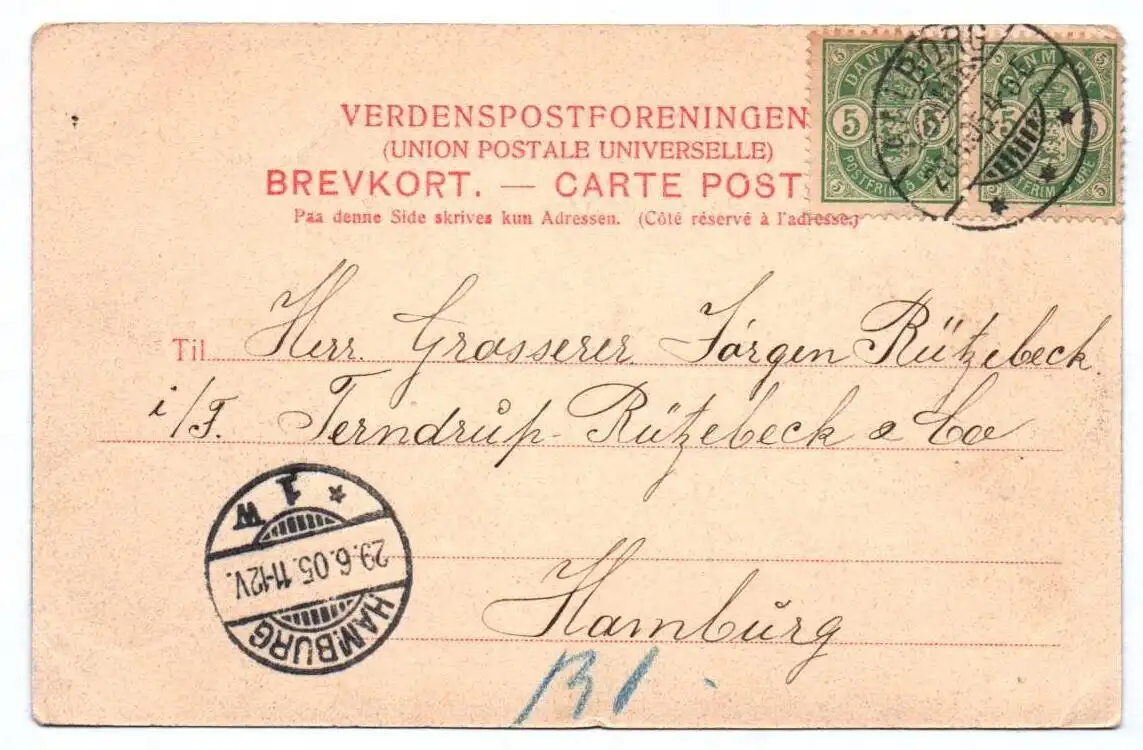 VERDENSPOSTFORENINGEN
(UNION POSTALE UNIVERSELLE)
BREVKORT. — CARTE POST
Paa denne Side skrives kun Adressen. (Côté réservé à l'adresse.)
DANMARK
5 5
POSTFRIM 5 ØRE
DANMARK
5 5
POSTFRIM 5 ØRE
Til Herr. Grosserer Jörgen Rützebeck.
i/F. Terndrup-Rützebeck & Co
Hamburg
1 W
29.6.05.11-12V.
HAMBURG